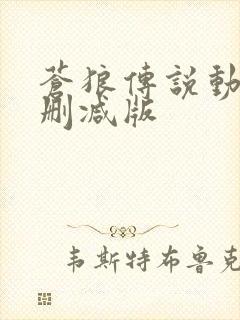 蒼狼傳說動
刪减版
韦斯特布鲁克